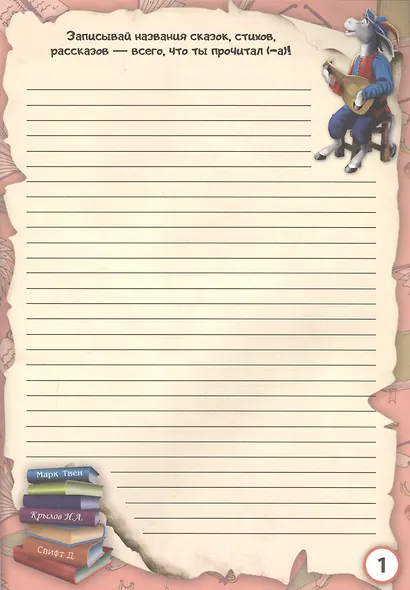 Записывай названия сказок, стихов,
рассказов — всего, что ты прочитал (-а)!
Марк Твен
Крылов И.А.
Свифт Д.
1